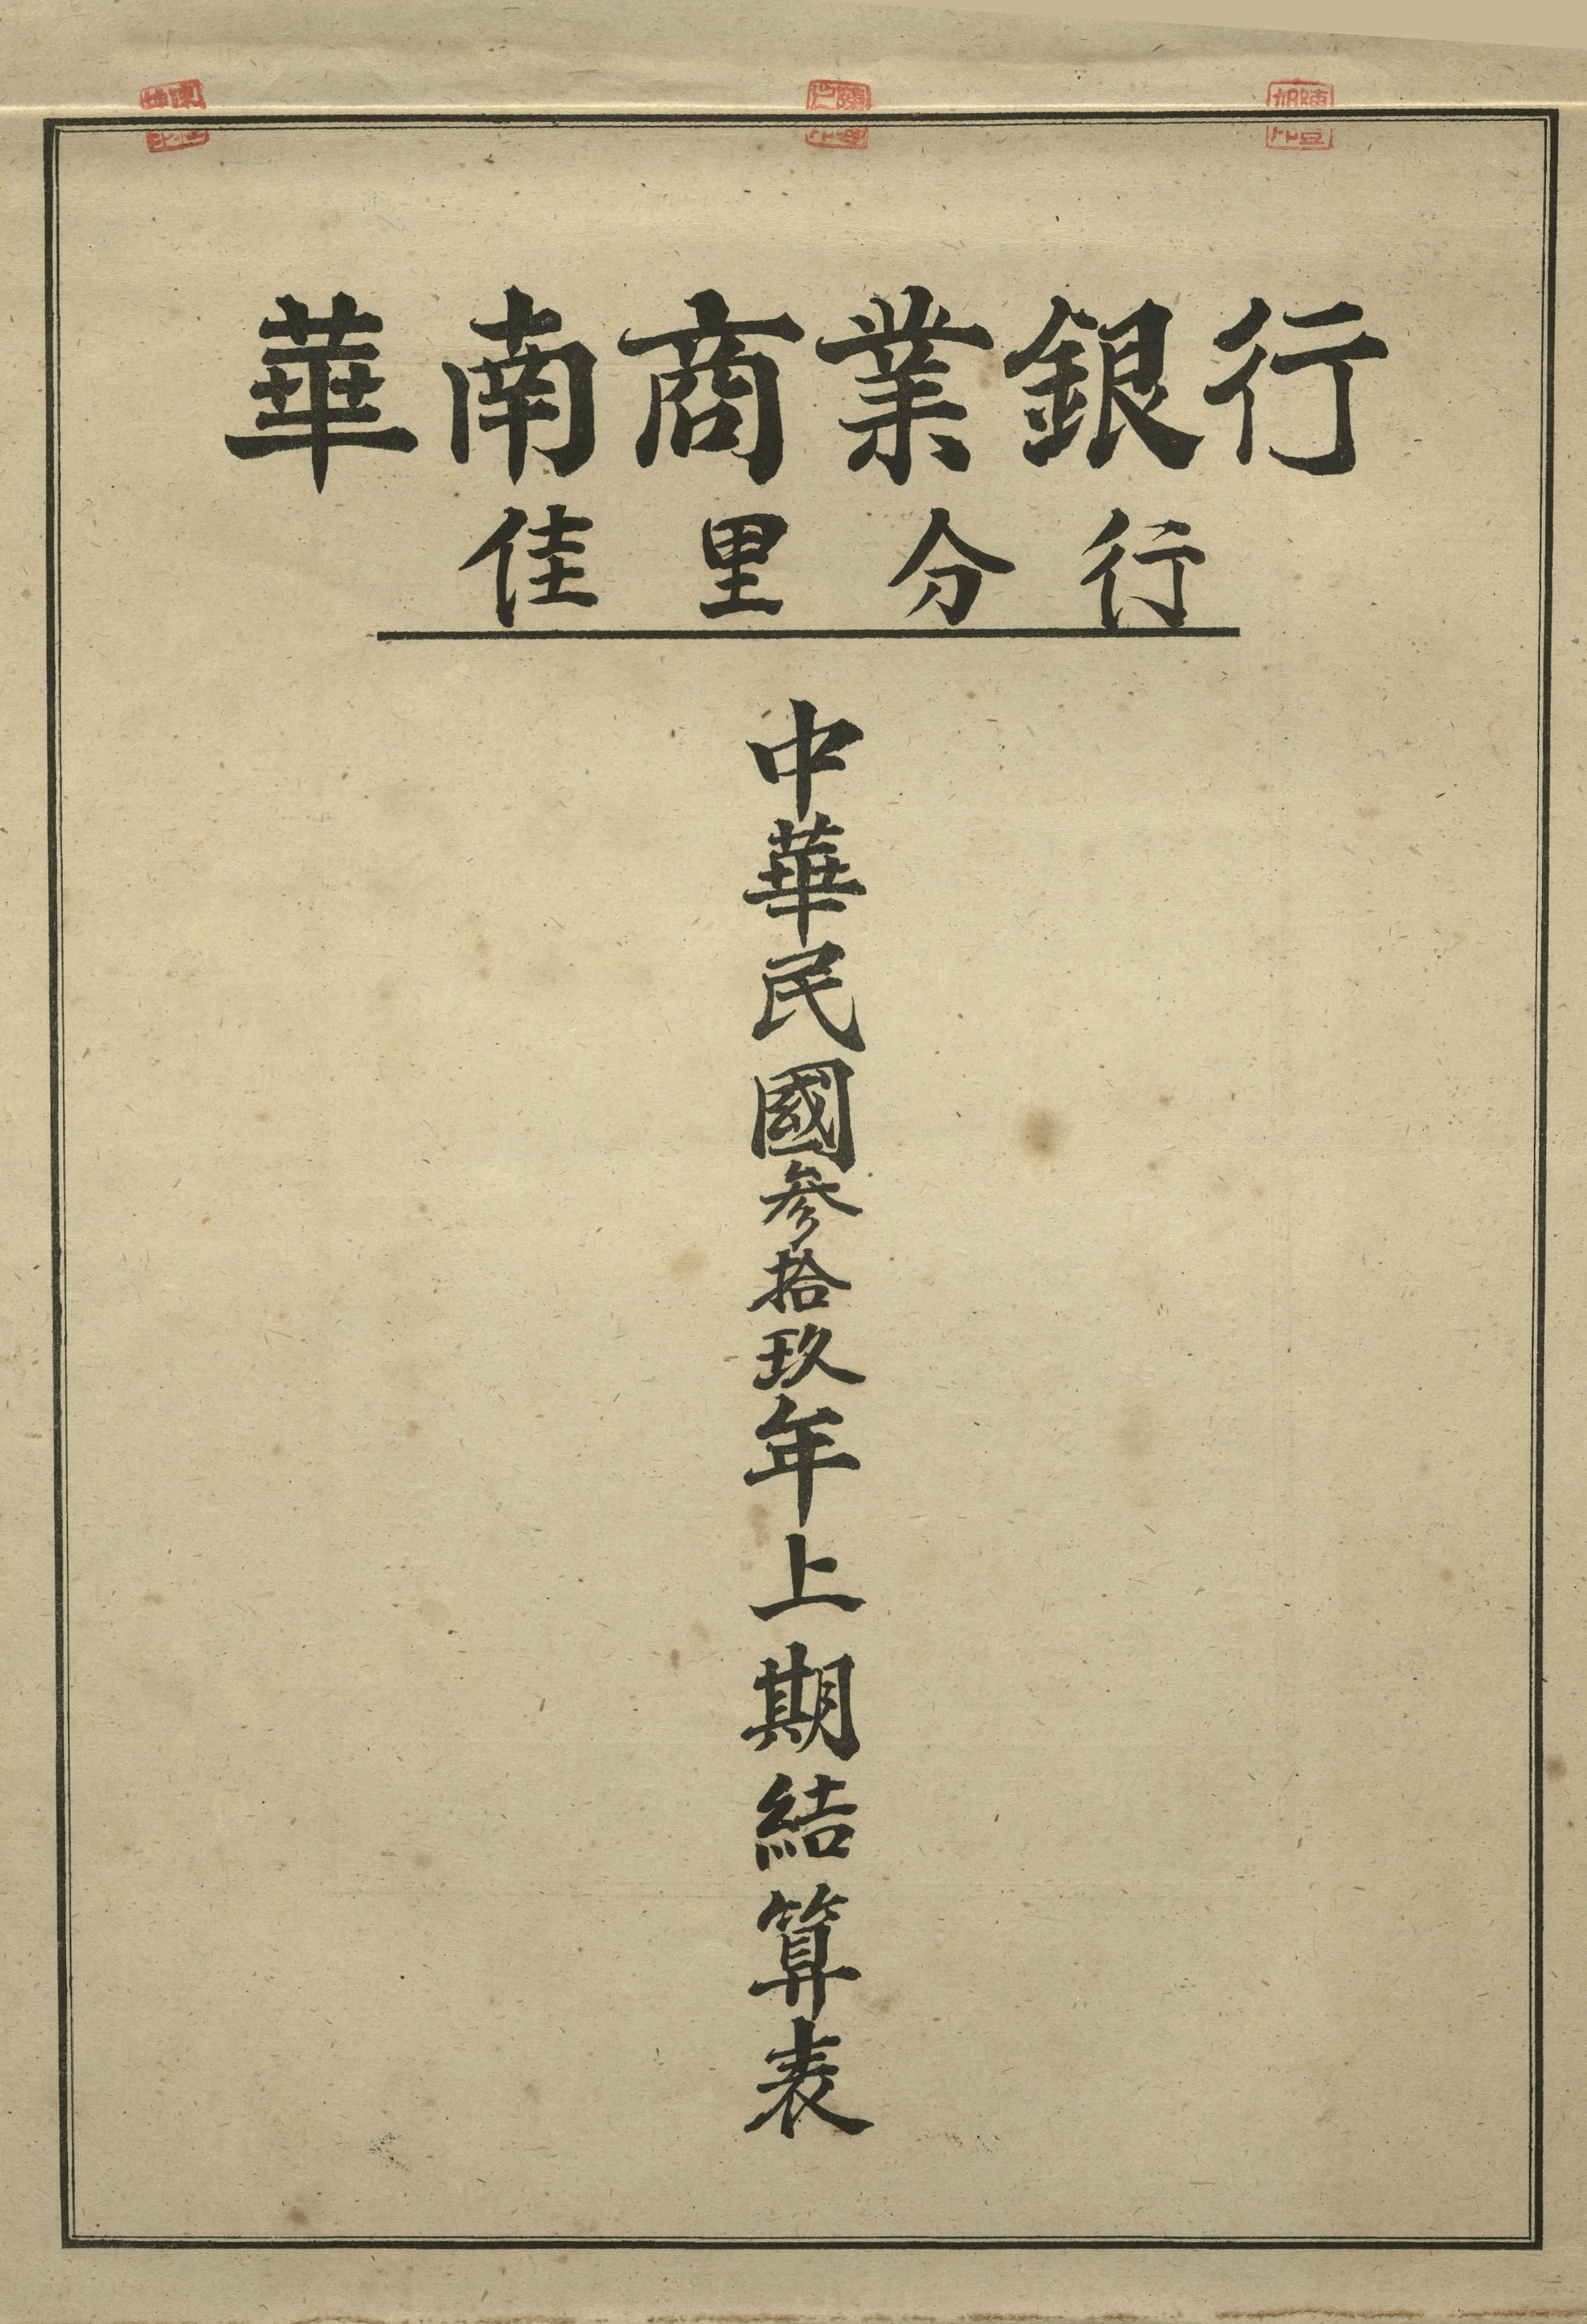 華南商業銀行
佳里分行
中華民國參拾玖年上期結算表